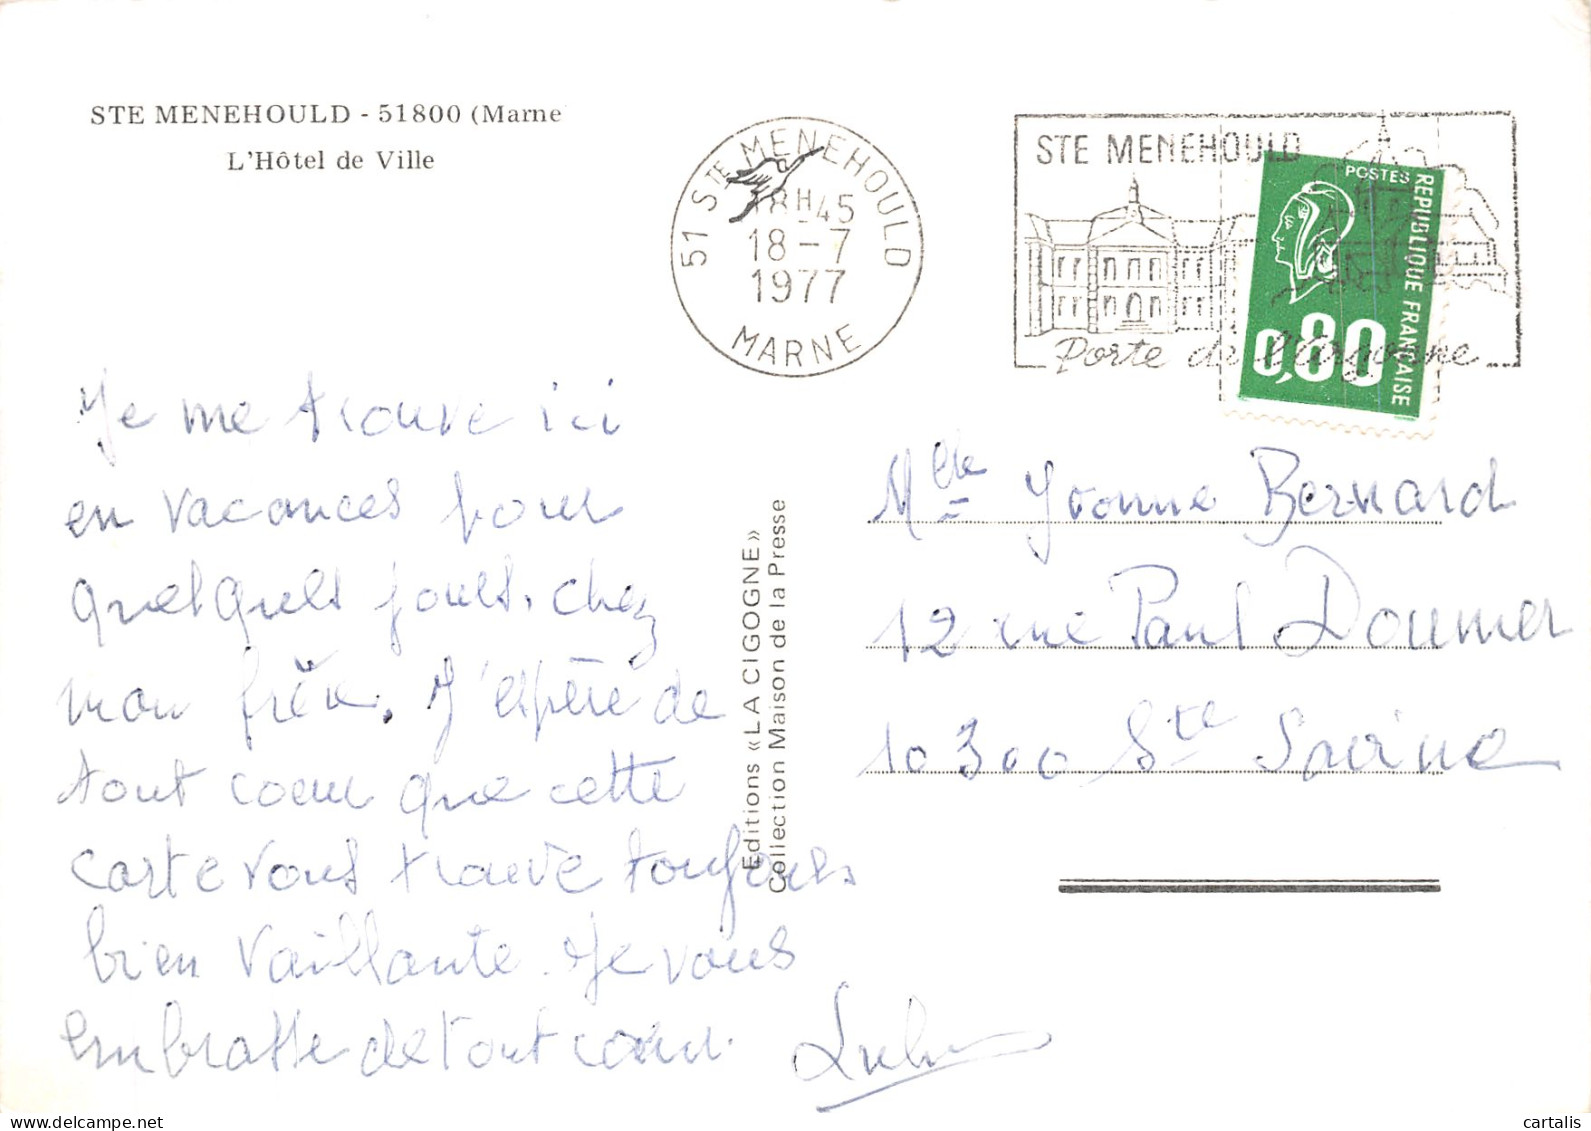 STE MENEHOULD - 51800 (Marne
L'Hôtel de Ville
51 STE MENEHOULD
18H45
18-7
1977
MARNE
STE MENEHOULD
Porte de l'Argonne
POSTES
REPUBLIQUE FRANÇAISE
0,80
Je me trouve ici
en vacances pour
quelques jours. chez
mon frère. J'espère de
tout coeur que cette
carte vous trouve toujours
bien vaillante. Je vous
embrasse de tout coeur.
Editions «LA CIGOGNE»
Collection Maison de la Presse
Mlle Yvonne Bernard
12 rue Paul Doumer
10300 Ste Savine
delcampe.net
cartalis